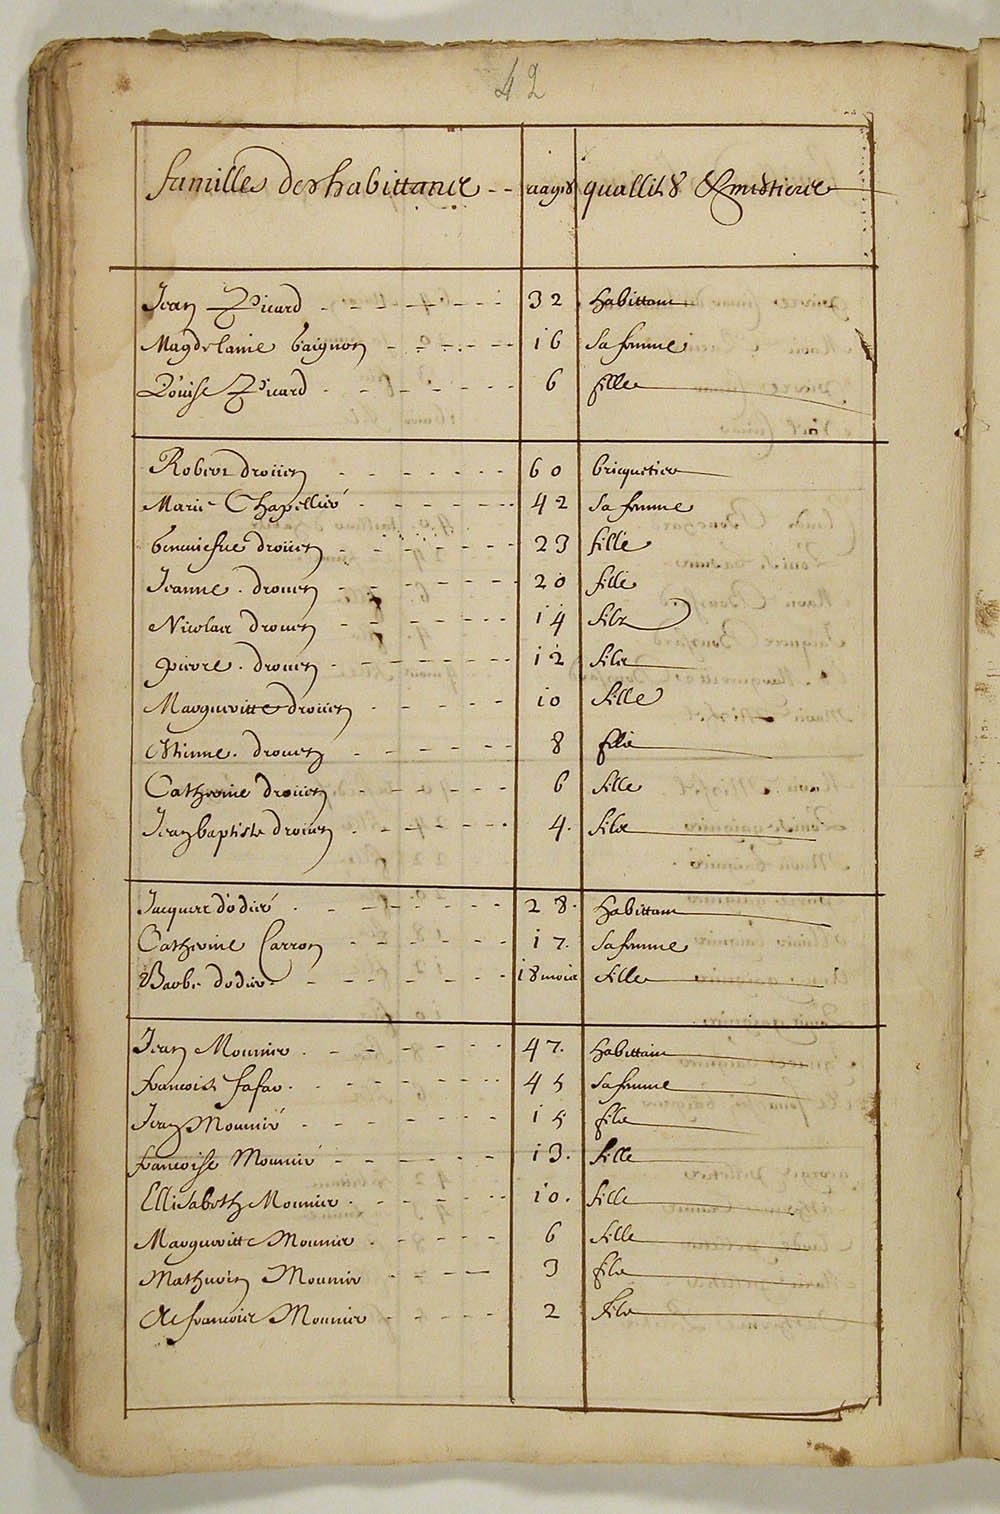 42
familles des habittans -- aages quallités & mestiers
Jean Picard 32 habittant
Magdelaine Gaignon 16 sa femme
Louise Picard 6 fille
Robert droüen 60 bricquetier
Marie Chapellier 42 sa femme
Geneuiefue droüen 23 fille
Jeanne . drouen 20 fille
Nicolas drouen 14 filz
pierre . drouen 12 filz
Margueritte droüen 10 fille
Estienne . drouen 8 filz
Catherine droüen 6 fille
Jean baptiste droüen 4. filz
Jacques dodier 28. habittant
Catherine Carron 17. sa femme
Barbe dodier 18 mois fille
Jean Mounier 47. habittant
francoise fafar . 45 sa femme
Jean Mounier 15 filz
francoise Mounier 13. fille
Ellisabeth Mounier . 10. fille
Margueritte Mounier . 6 fille
Mathurin Mounier 3 filz
& francois Mounier 2 filz